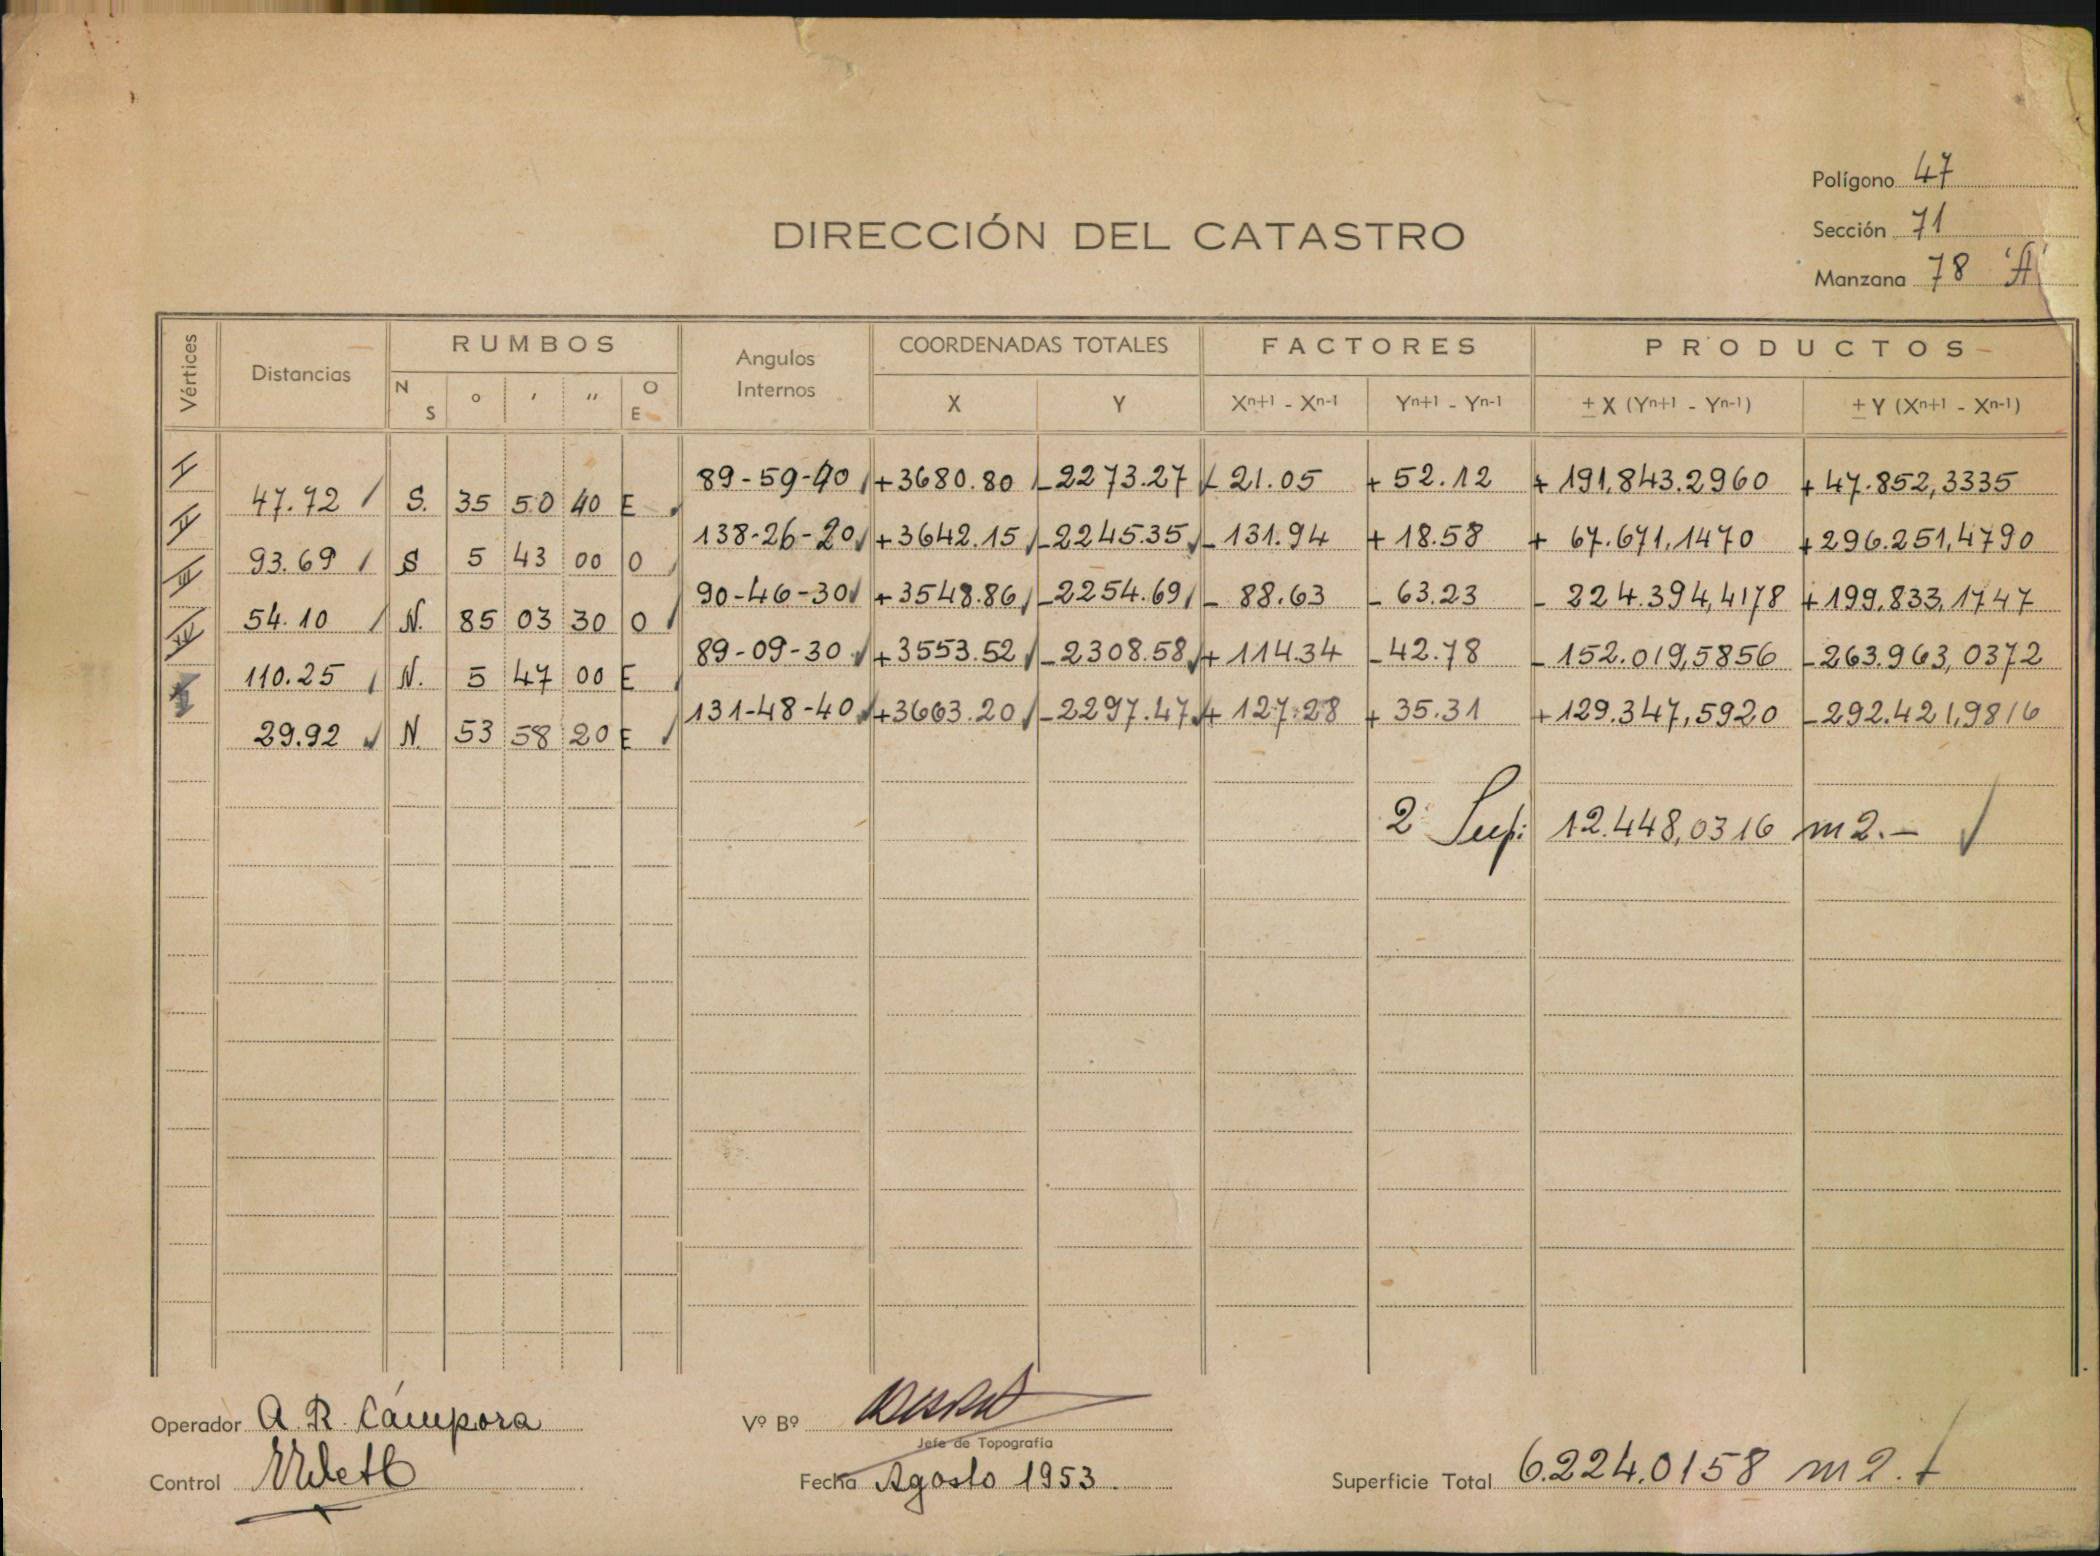 Polígono 47
Sección 71
Manzana 78 'A'
DIRECCIÓN DEL CATASTRO
Vértices Distancias RUMBOS Angulos Internos COORDENADAS TOTALES FACTORES PRODUCTOS
N S ° ' " O E X Y Xn+1 - Xn-1 Yn+1 - Yn-1 ± X (Yn+1 - Yn-1) ± Y (Xn+1 - Xn-1)
I 89-59-40 +3680.80 -2273.27 - 21.05 + 52.12 + 191.843.2960 + 47.852,3335
47.72 S. 35 50 40 E
II 138-26-20 +3642.15 -2245.35 - 131.94 + 18.58 + 67.671,1470 +296.251,4790
93.69 S 5 43 00 O
III 90-46-30 +3548.86 -2254.69 - 88.63 - 63.23 - 224.394,4178 +199.833,1747
54.10 N. 85 03 30 O
IV 89-09-30 +3553.52 -2308.58 + 114.34 -42.78 - 152.019,5856 -263.963,0372
110.25 N. 5 47 00 E
V 131-48-40 +3663.20 -2297.47 + 127.28 + 35.31 +129.347,5920 -292.421,9816
29.92 N. 53 58 20 E
2 Sup: 12.448,0316 m2.-
Operador A. R. Cámpora
Vº Bº
Jefe de Topografía
Control
Fecha Agosto 1953.
Superficie Total 6.224.0158 m2.